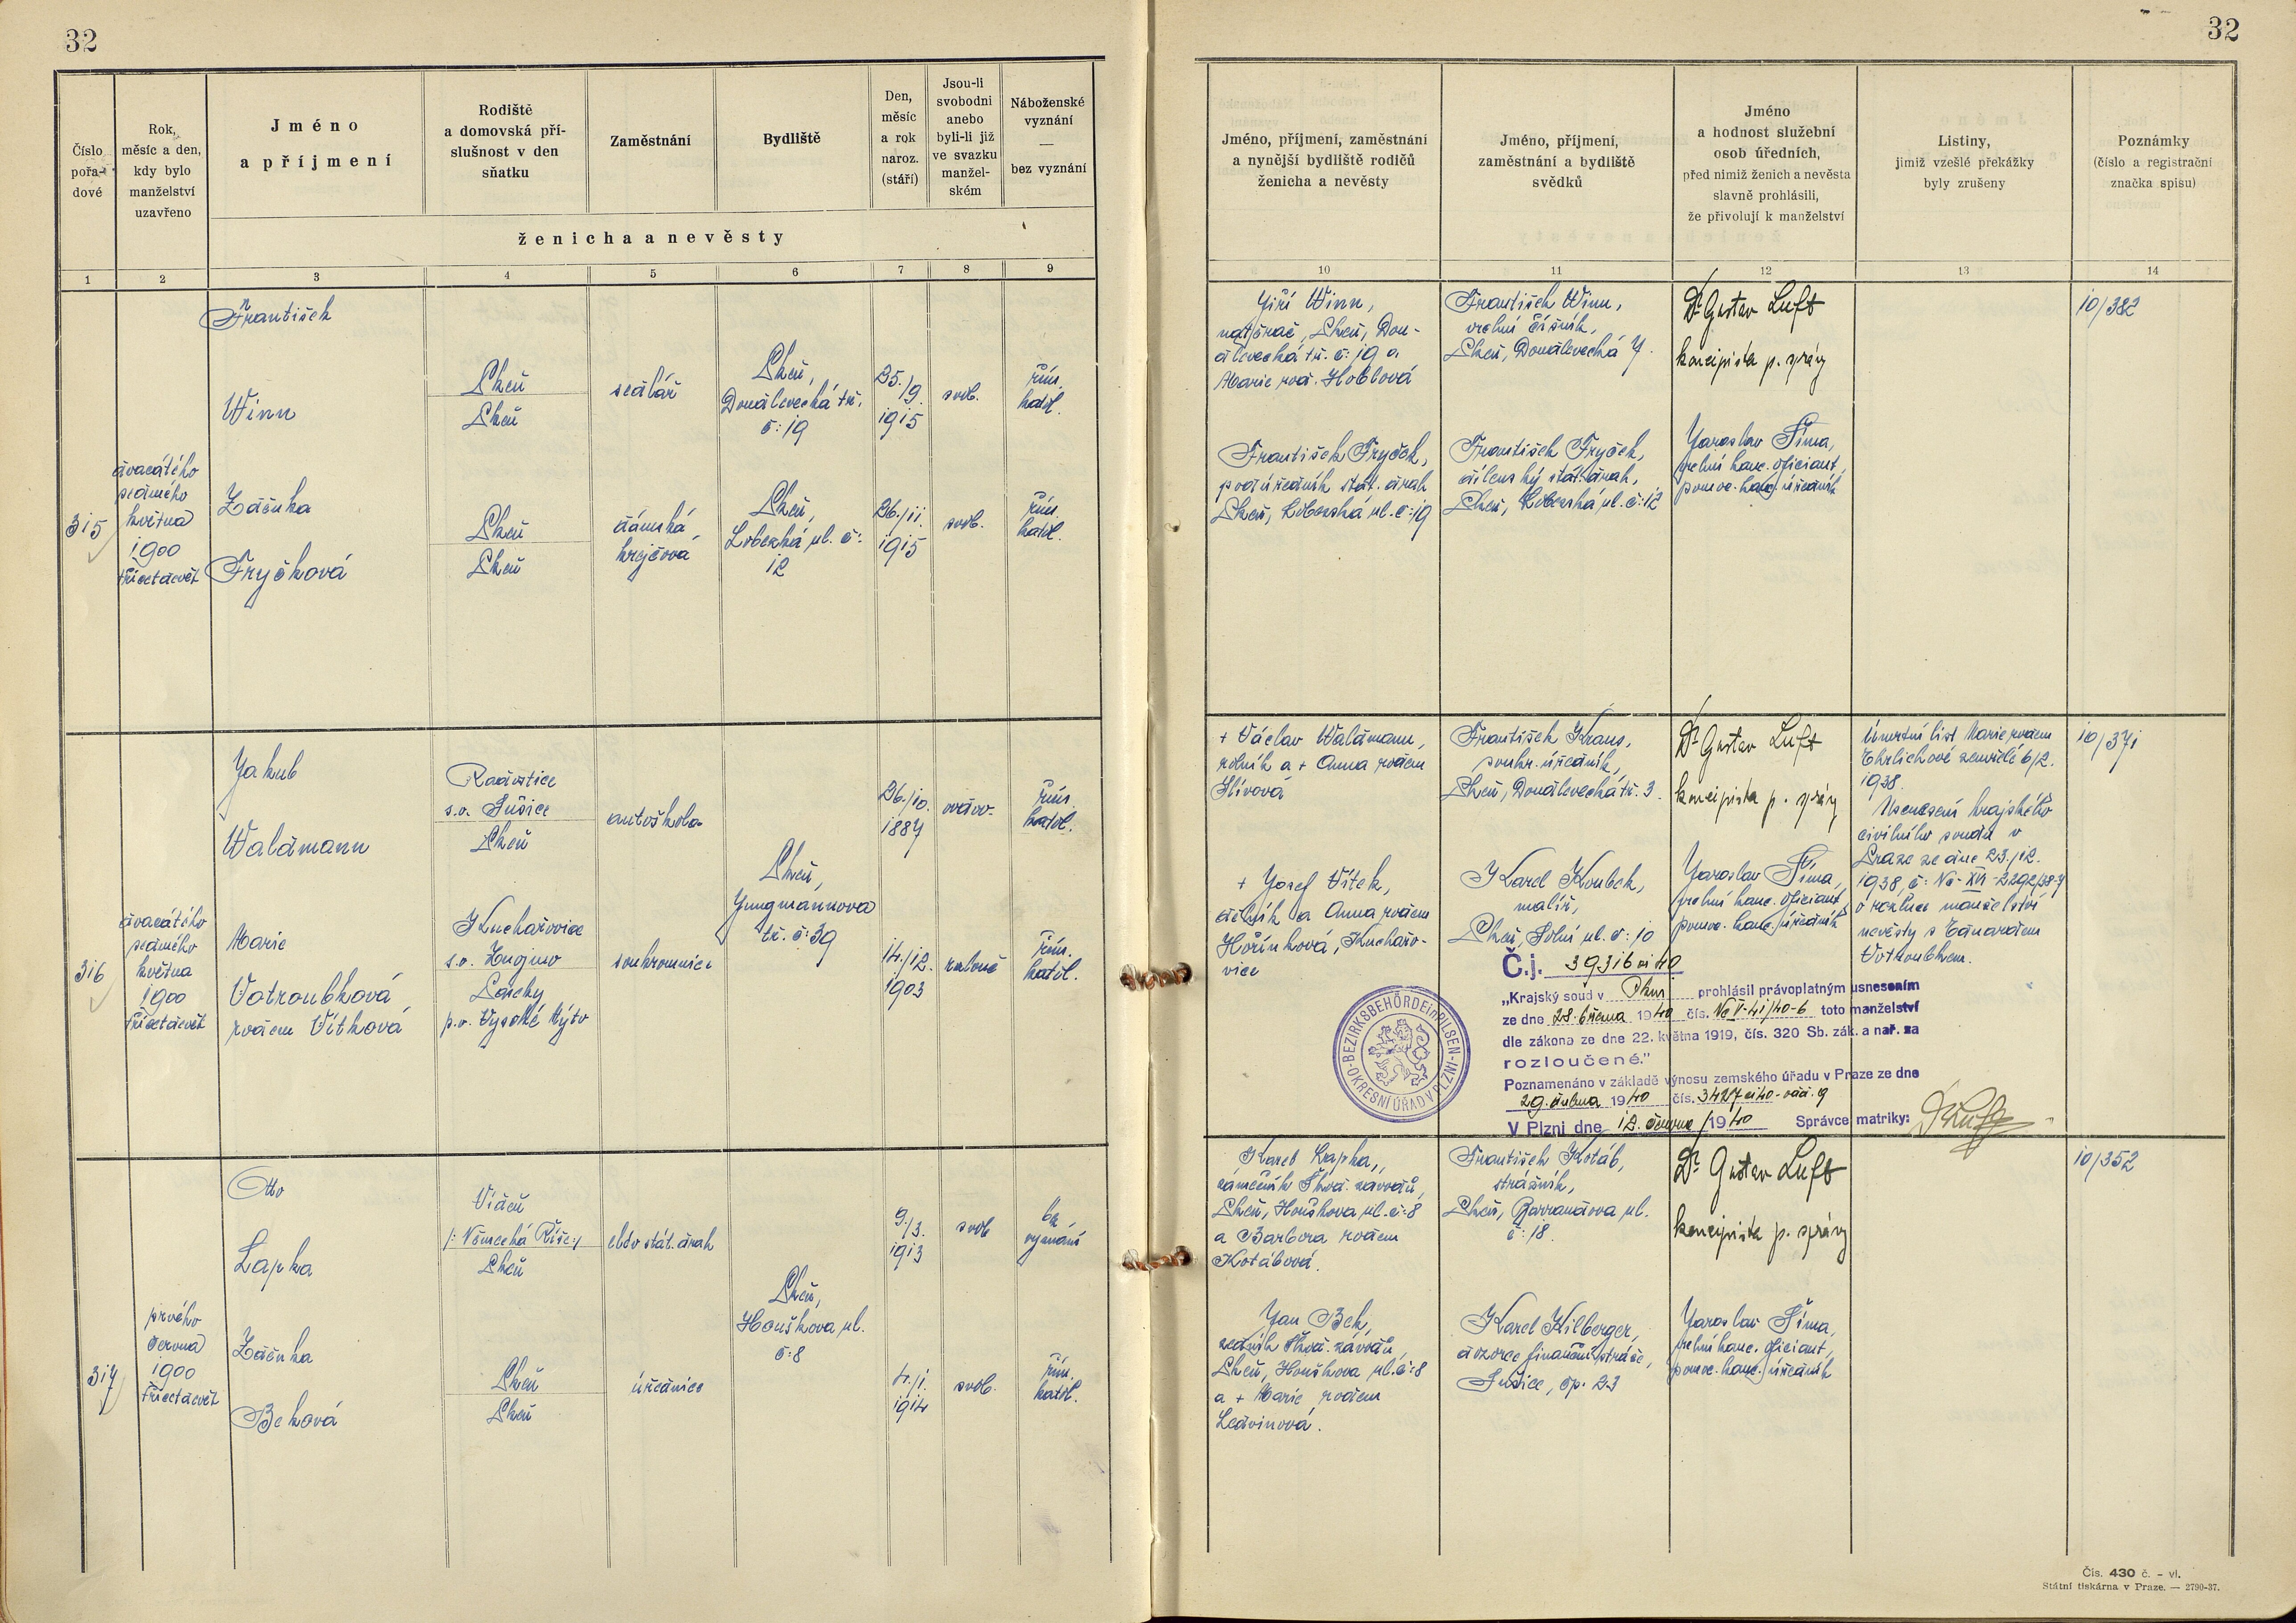 32
32
Číslo pořadové
Rok, měsíc a den, kdy bylo manželství uzavřeno
Jméno a příjmení
Rodiště a domovská příslušnost v den sňatku
Zaměstnání
Bydliště
Den, měsíc a rok naroz. (stáří)
Jsou-li svobodni anebo byli-li již ve svazku manželském
Náboženské vyznání — bez vyznání
ženicha a nevěsty
Jméno, příjmení, zaměstnání a nynější bydliště rodičů ženicha a nevěsty
Jméno, příjmení, zaměstnání a bydliště svědků
Jméno a hodnost služební osob úředních, před nimiž ženich a nevěsta slavně prohlásili, že přivolují k manželství
Listiny, jimiž vzešlé překážky byly zrušeny
Poznámky (číslo a registrační značka spisu)
1 2 3 4 5 6 7 8 9 10 11 12 13 14
315
dvacátého
sedmého
května
1900
třicetdevět
František
Winn
Plzeň
Plzeň
sedlář
Plzeň,
Doudlevecká tř.
č: 19
25./9.
1915
svob.
řím.
katol.
Zdeňka
Fryčková
Plzeň
Plzeň
dámská
krejčová
Plzeň,
Lobezká ul. č:
12
26./11.
1915
svob.
řím.
katol.
Jiří Winn,
natěrač, Plzeň, Dou-
dlevecká tř. č: 19 a
Marie roz. Hoblová
František Fryček,
podúředník stát. drah
Plzeň, Lobezská ul. č: 19
František Winn,
vrchní číšník,
Plzeň, Doudlevecká 7.
František Fryček,
dílenský stát. drah,
Plzeň, Lobezská ul. č: 12
Dr Gustav Luft
koncipista p. správy
Jaroslav Šíma,
vrchní kanc. oficiant,
pomoc. kanc. úředník
10/382
316
dvacátého
sedmého
května
1900
třicetdevět
Jakub
Waldmann
Radostice
s.o. Sušice
Plzeň
autoškola
26./10.
1887
vdov-
řím.
katol.
Plzeň,
Jungmannova
tř. č: 39
Marie
Votroubková
rozem Vítková
Kuchařovice
s.o. Znojmo
Loučky
p.o. Vysoké Mýto
soukromnice
14./12.
1903
rozloučená
řím.
katol.
+ Václav Waldmann,
rolník a + Anna rozem
Slívová
+ Josef Vítek,
dělník a Anna rozem
Hořínková, Kuchařo-
vice
František Kraus,
soukr. úředník,
Plzeň, Doudlevecká tř. 3.
Karel Koubek,
malíř,
Plzeň, Solní ul. č: 10
Dr Gustav Luft
koncipista p. správy
Jaroslav Šíma,
vrchní kanc. oficiant,
pomoc. kanc. úředník
Úmrtní list Marie rozem
Ehrlichové zemřelé 6/2.
1938.
Usnesení krajského
civilního soudu v
Praze ze dne 23./12.
1938, č: Nc-XVI-2292/38-7
o rozluce manželství
nevěsty s Eduardem
Votroubkem.
10/371
Č.j. 39316 ai 40
„Krajský soud v Plzni prohlásil právoplatným usnesením
ze dne 28. března 1940 čís. Nc V-41/40-6 toto manželství
dle zákona ze dne 22. května 1919, čís. 320 Sb. zák. a nař. za
rozloučené."
Poznamenáno v základě výnosu zemského úřadu v Praze ze dne
29. dubna 1940 čís. 3427 ai 40 - odd. 9
V Plzni dne 12. června 1940 Správce matriky:
BEZIRKSBEHÖRDE in PILSEN - OKRESNÍ ÚŘAD V PLZNI
317
prvého
června
1900
třicetdevět
Otto
Lapka
Vídeň
/: Německá Říše :/
Plzeň
elév stát. drah
9./3.
1913
svob
bez
vyznání
Plzeň,
Houškova ul.
č: 8
Zdeňka
Beková
Plzeň
Plzeň
úřednice
4./1.
1914
svob.
řím.
katol.
Karel Lapka,
zámečník Škod. závodů,
Plzeň, Houškova ul. č: 8
a Barbora rozem
Kotábová.
Jan Bek,
zedník Škod. závodů,
Plzeň, Houškova ul. č: 8
a + Marie rozem
Ledvinová.
František Kotáb,
strážník,
Plzeň, Barrandova ul.
č: 18.
Karel Kilberger,
dozorce finanční stráže,
Sušice, čp. 23
Dr Gustav Luft
koncipista p. správy
Jaroslav Šíma,
vrchní kanc. oficiant,
pomoc. kanc. úředník
10/352
Čís. 430 č. - vl.
Státní tiskárna v Praze. — 2790-37.